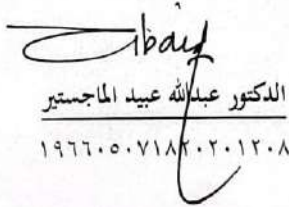 الدكتور عبدالله عبيد الماجستير
١٩٦٦٠٥٠٧١٨٢٠٢٠١٢٠٨